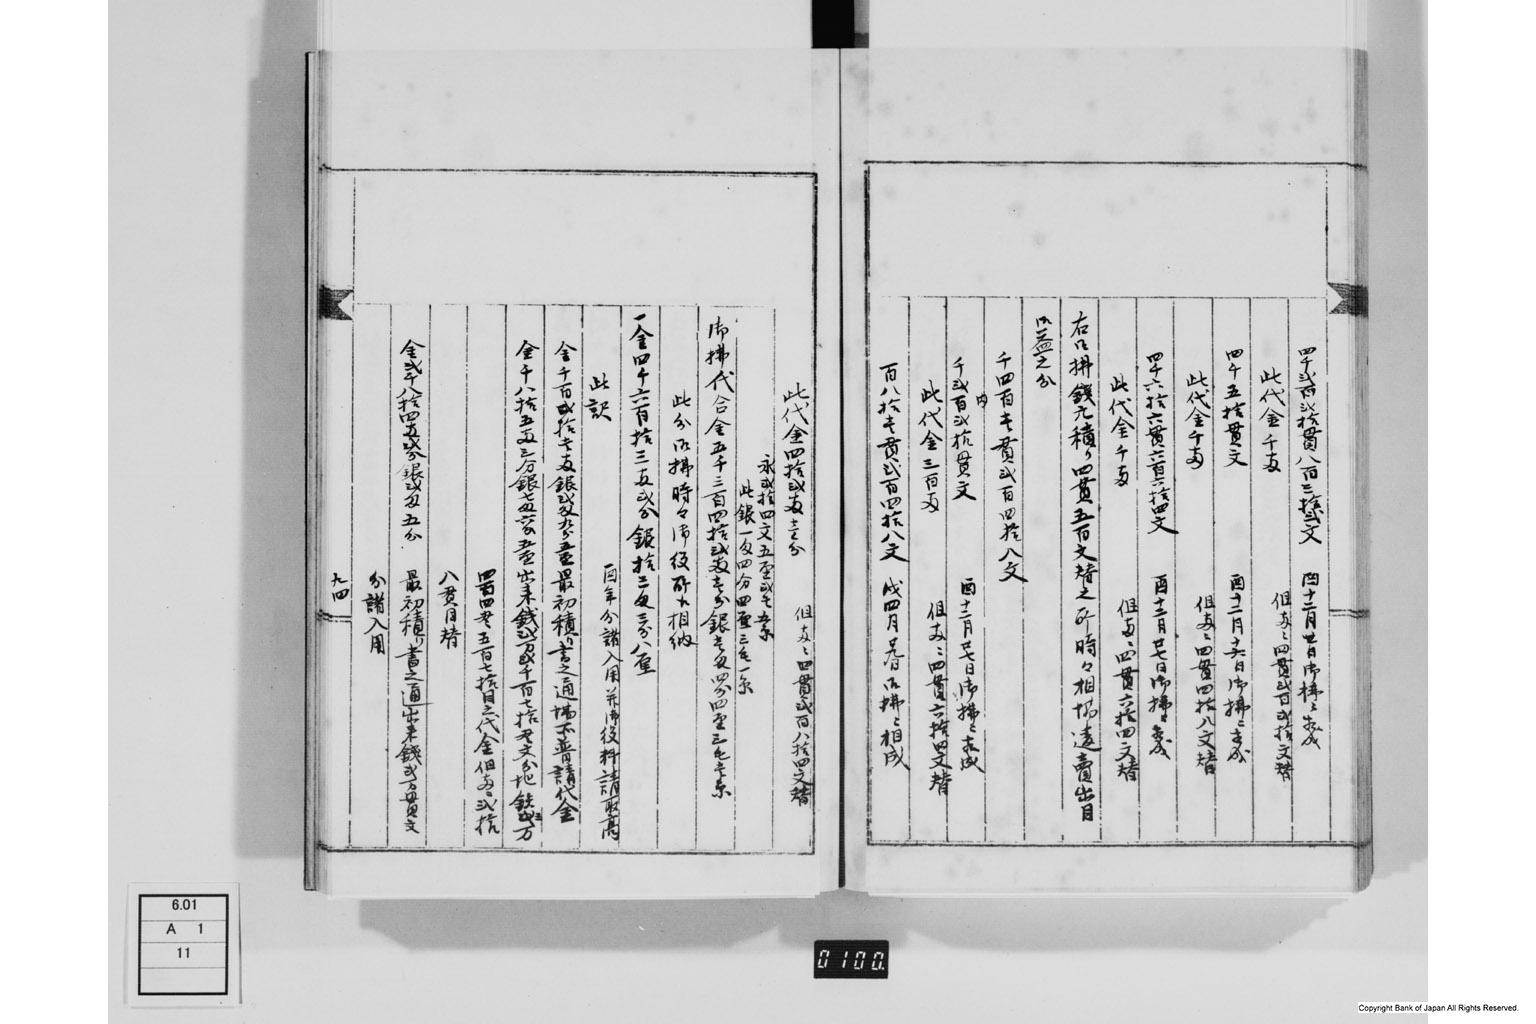 四千弐百弐拾貫八百三拾弐文
酉十二月廿日御拂ニ相成
此代金千両
但両ニ四貫弐百弐拾文替
四千五拾貫文
酉十二月十六日御拂ニ相成
此代金千両
但両ニ四貫四拾八文替
四千六拾六貫六百六拾四文
酉十二月廿七日御拂ニ相成
此代金千両
但両ニ四貫六拾四文替
右御拂銭元積り四貫五百文替之所時々相場違賣出目
御益之分
千四百壱貫弐百四拾八文
内
千弐百弐拾貫文
酉十二月廿七日御拂ニ相成
此代金三百両
但両ニ四貫六拾四文替
百八拾壱貫弐百四拾八文
戌四月廿九日御拂ニ相成
此代金四拾弐両壱分
但両ニ四貫弐百八拾四文替
永弐拾四文五厘弐毛
此銀一匁四分四厘三毛一糸
御拂代合金五千三百四拾弐両壱分銀壱匁四分四厘三毛壱糸
此分御拂時々御役所江相納
一金四千六百拾三両弐分銀拾三匁三分八厘
酉年分諸入用并御役料請取高
此訳
金千百弐拾壱両銀弐匁九分五厘
最初積り書之通場所普請代金
金千八拾五両三分銀七匁
出来銭弐万弐千百七拾壱貫文分地鉄弐万
四百四貫五百七拾目之代金但両ニ弐拾
八貫目替
金弐千八拾四両弐分銀弐匁五分
最初積り書之通出来銭弐万貫文
分諸入用
九四
6.01
A 1
11
0100
Copyright Bank of Japan All Rights Reserved.